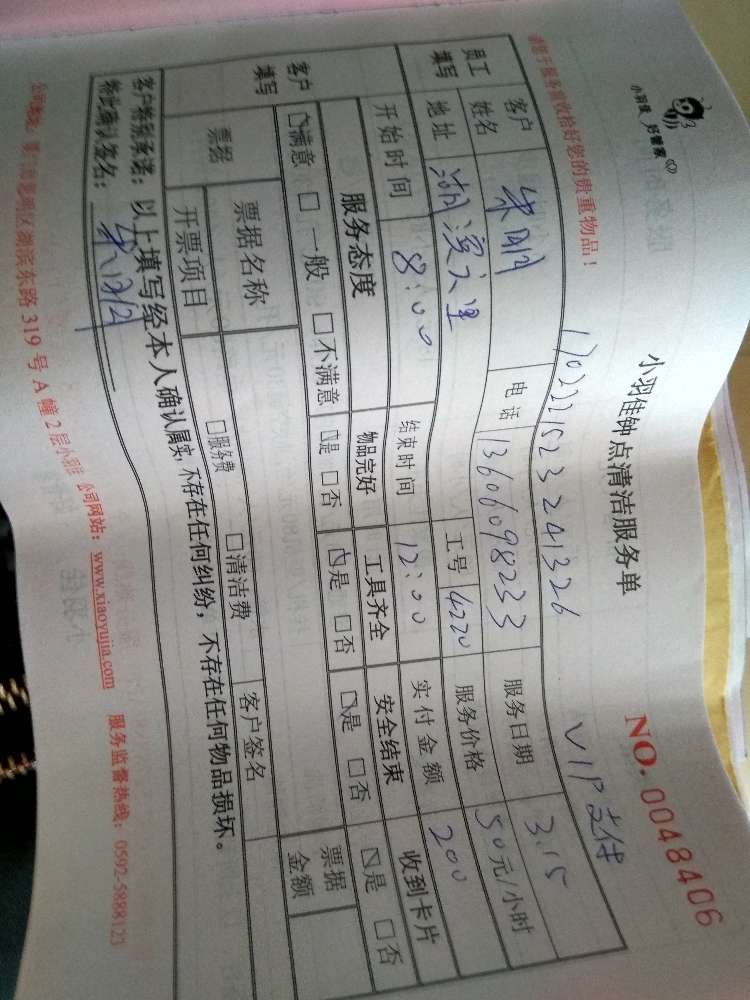 小羽佳 好管家
小羽佳钟点清洁服务单
NO. 0048406
请您于服务前收拾好您的贵重物品!
1702221523241326
VIP支付
员工填写
客户姓名
电话 13606098233
服务日期 3.15
地址 湖滨六里
工号 4220
服务价格 50元/小时
开始时间 8:00
结束时间 12:00
实付金额 200
客户填写
服务态度
物品完好
工具齐全
安全结束
收到卡片
☑满意 □一般 □不满意
☑是 □否
☑是 □否
☑是 □否
☑是 □否
票据
票据名称
票据金额
开票项目
□服务费 □清洁费
客户签名
客户特别承诺:以上填写经本人确认属实,不存在任何纠纷,不存在任何物品损坏。
特此确认签名:
公司地址:厦门市思明区湖滨东路319号A幢2层小羽佳 公司网站:www.xiaoyujia.com 服务监督热线:0592-5888123